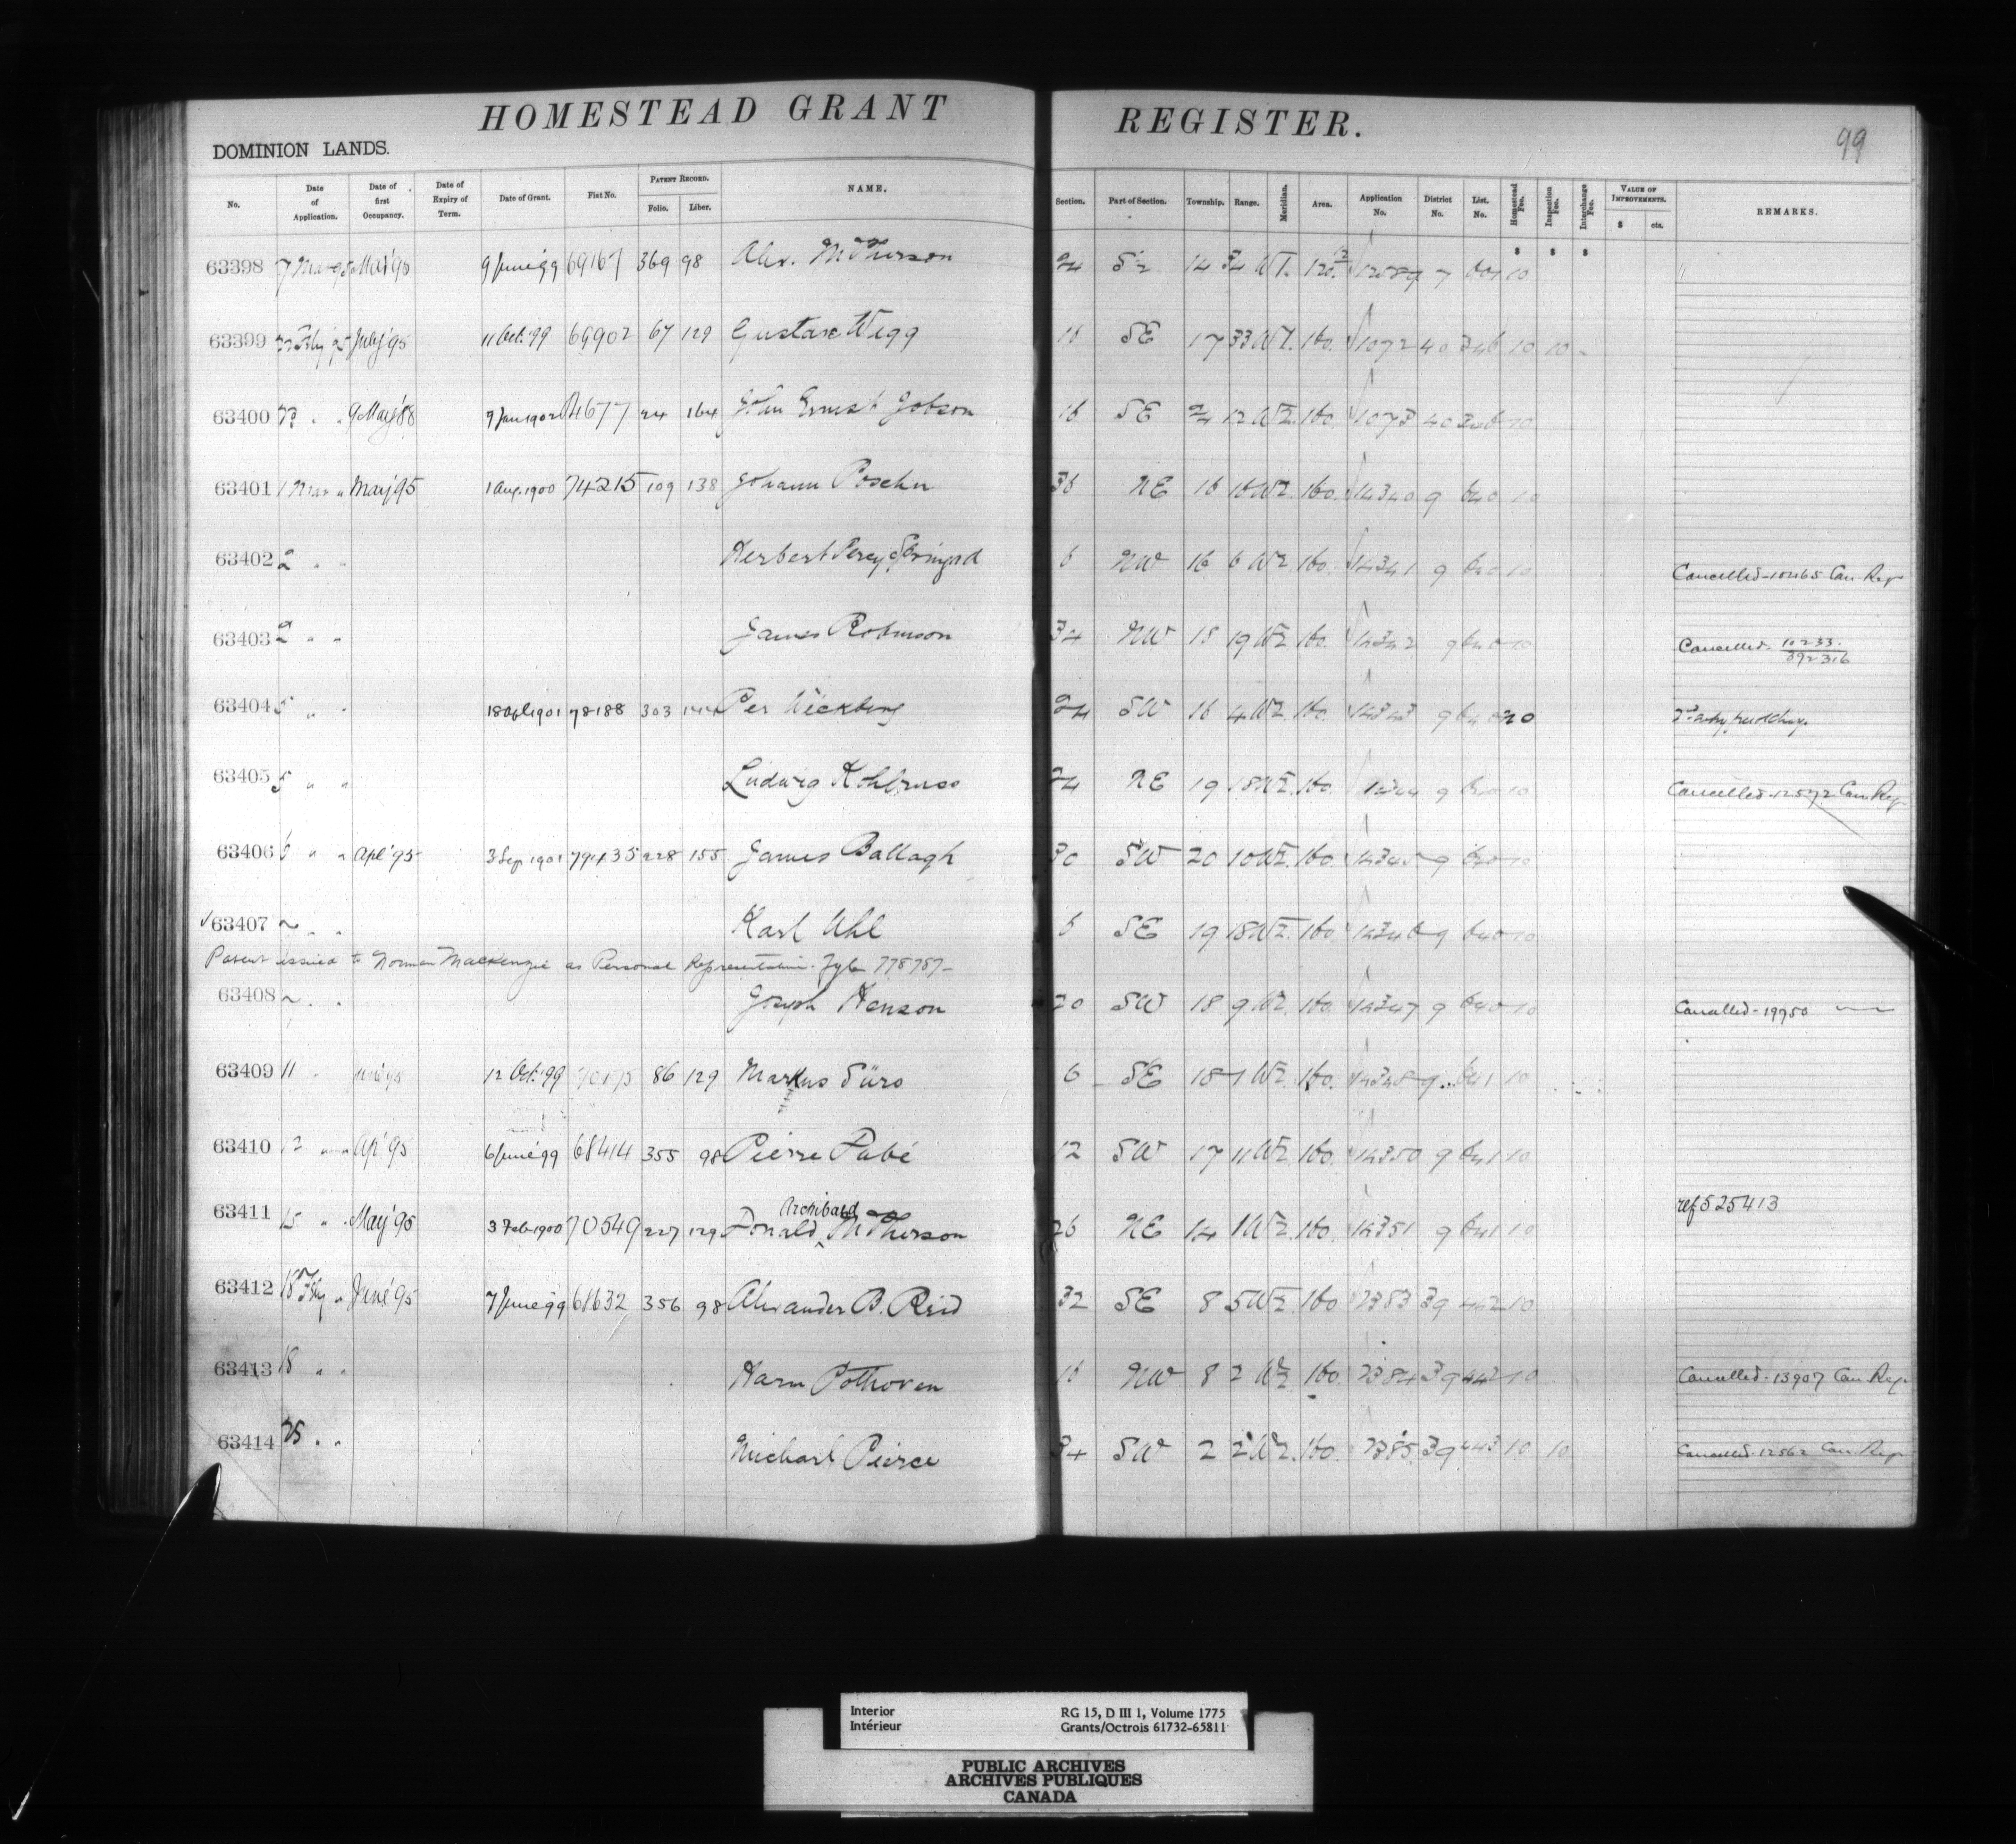 HOMESTEAD GRANT REGISTER.
99
DOMINION LANDS.
No. Date of Application. Date of first Occupancy. Date of Expiry of Term. Date of Grant. Fiat No. PATENT RECORD. Folio. Liber. NAME. Section. Part of Section. Township. Range. Meridian. Area. Application No. District No. List. No. Homestead Fee. Inspection Fee. Interchange Fee. VALUE OF IMPROVEMENTS. $ cts. REMARKS.
$ $ $
63398 7 Mar 95 Mai '95 9 June '99 69167 369 98 Alex. McPherson 24 14 34 W1. 7 10
63399 July '95 11 Oct. '99 69902 67 129 Gustave Wigg SE 17 33 W1. 160. 1072 40 346 10 10
63400 9 May '88 9 Jan 1902 24 164 John Ernest Jobson 16 SE 12 W2. 160. 1073 40 346 10
63401 1 Mar " May '95 1 Aug. 1900 74215 109 138 Johann Poschn 36 NE 16 W2. 160. 14340 9 640 10
63402 2 " " Herbert Percy 6 NW 16 6 W2. 160. 14341 9 640 10 Cancelled - 10465 Can. Reg
63403 2 " " James Robinson 34 NW 19 W2. 160. 14342 9 640 10 Cancelled. 10233. 392316
63404 5 " " 1901 78188 303 144 Per Wickberg 24 SW 16 4 W2. 160. 14343 9 640
63405 5 " " Ludwig Kohlruss 24 NE 19 18 W2. 160. 14344 9 640 10 Cancelled - 12572 Can. Reg
63406 6 " " Apl '95 3 Sep 1901 79435 228 155 James Ballagh 30 SW 20 10 W2. 160. 14345 9 640 10
63407 " " Karl Uhl 6 SE 19 18 W2. 160 14346 9 640 10
Patent issued to Norman Mackenzie as Personal Representative. Fyle 778787
63408 " " Joseph Henson 20 SW 18 9 W2. 160. 14347 9 640 10 Cancelled - 19750
63409 11 " June '95 12 Oct. '99 86 129 Markus Sürs 6 SE 1 W2. 160. 14348 9 641 10
63410 12 " " Ap. '95 6 June '99 68414 355 98 Pierre Pabé 12 SW 17 11 W2. 160. 14350 9 641 10
63411 15 " " May '95 3 Feb 1900 70549 227 129 Donald Archibald McPherson 26 NE 14 1 W2. 160. 14351 9 641 10 ref 525413
63412 18 Feby " June '95 7 June '99 68632 356 98 Alexander B. Reid 32 SE 8 5 W2. 160 2383 39 442 10
63413 18 " " Harm Pothoven 16 NW 8 2 W2 160 2384 39 442 10 Cancelled - 13907 Can. Reg.
63414 25 " " Michael Pierce 34 SW 2 2 W2. 160. 2385 39 443 10 10 Cancelled - 12562 Can. Reg
Interior RG 15, D III 1, Volume 1775
Intérieur Grants/Octrois 61732-65811
PUBLIC ARCHIVES
ARCHIVES PUBLIQUES
CANADA